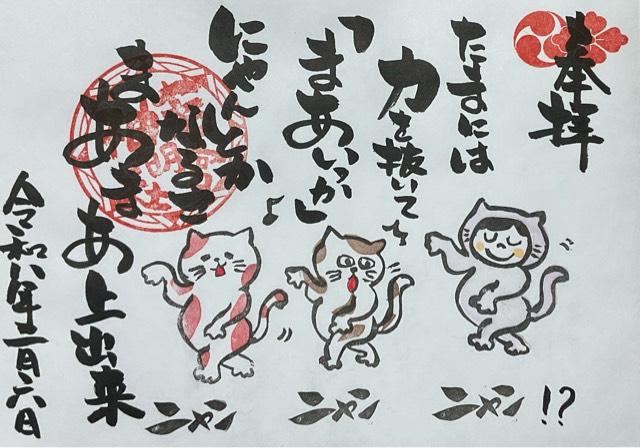 奉拝
たまには
力を抜いて
「まあいっか」
にゃんとか
なるさ♪
まあま
あ上出来
令和八年二月六日
ニャン ニャン ニャン!?